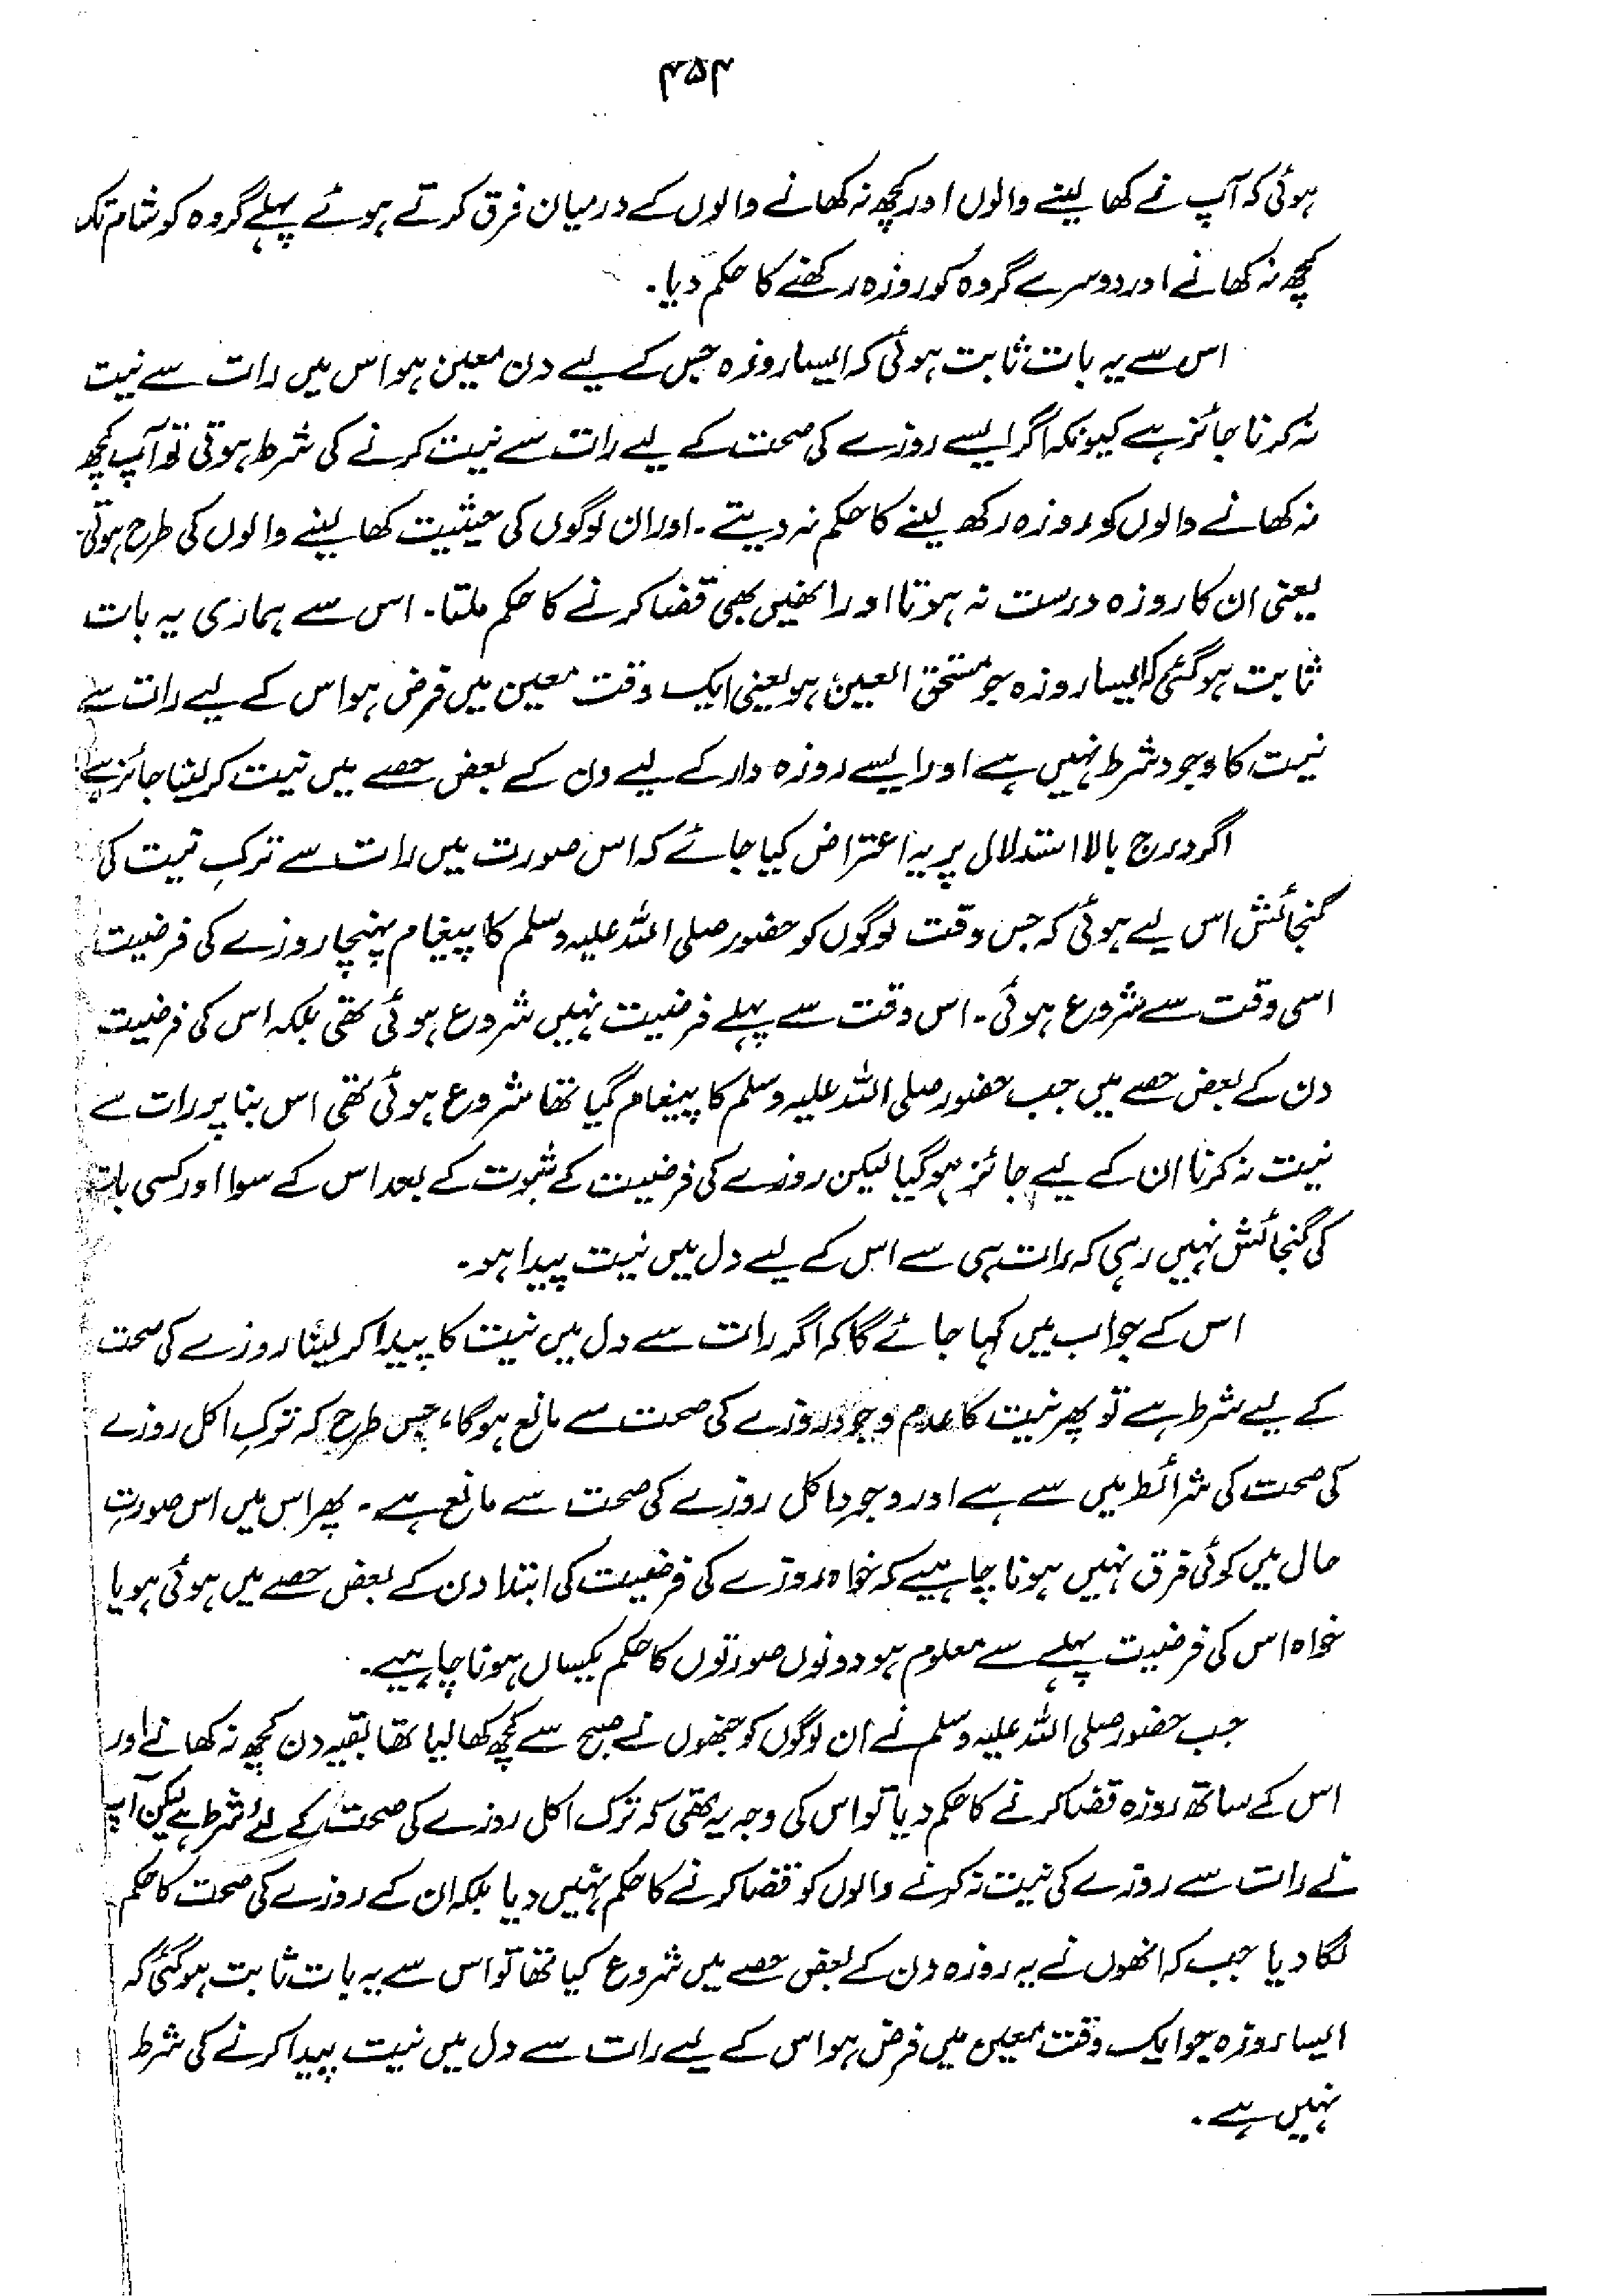 ۴۵۴
ہوئی کہ آپ نے کھا لینے والوں اور کچھ نہ کھانے والوں کے درمیان فرق کرتے ہوئے پہلے گروہ کو شام تک
کچھ نہ کھانے اور دوسرے گروہ کو روزہ رکھنے کا حکم دیا۔
اس سے یہ بات ثابت ہوئی کہ ایسا روزہ جس کے لیے دن معین ہو اس میں رات سے نیت
نہ کرنا جائز ہے کیونکہ اگر ایسے روزے کی صحت کے لیے رات سے نیت کرنے کی شرط ہوتی تو آپ کچھ
نہ کھانے والوں کو روزہ رکھ لینے کا حکم نہ دیتے۔ اور ان لوگوں کی حیثیت کھا لینے والوں کی طرح ہوتی۔
یعنی ان کا روزہ درست نہ ہوتا اور انھیں بھی قضا کرنے کا حکم ملتا۔ اس سے ہماری یہ بات
ثابت ہوگئی کہ ایسا روزہ جو مستحق العین ہو یعنی ایک وقت معین میں فرض ہو اس کے لیے رات سے
نیت کا وجود شرط نہیں ہے اور ایسے روزہ دار کے لیے دن کے بعض حصے میں نیت کر لینا جائز ہے
اگر درج بالا استدلال پر یہ اعتراض کیا جائے کہ اس صورت میں رات سے ترکِ نیت کی
گنجائش اس لیے ہوئی کہ جس وقت لوگوں کو حضور صلی اللہ علیہ وسلم کا پیغام پہنچا روزے کی فرضیت
اسی وقت سے شروع ہوئی۔ اس وقت سے پہلے فرضیت نہیں شروع ہوئی تھی بلکہ اس کی فرضیت
دن کے بعض حصے میں جب حضور صلی اللہ علیہ وسلم کا پیغام گیا تھا شروع ہوئی تھی اس بنا پر رات سے
نیت نہ کرنا ان کے لیے جائز ہوگیا لیکن روزے کی فرضیت کے ثبوت کے بعد اس کے سوا اور کسی بات
کی گنجائش نہیں رہی کہ رات ہی سے اس کے لیے دل میں نیت پیدا ہو۔
اس کے جواب میں کہا جائے گا کہ اگر رات سے دل میں نیت کا پیدا کر لینا روزے کی صحت
کے لیے شرط ہے تو پھر نیت کا عدم وجود روزے کی صحت سے مانع ہوگا، جس طرح کہ ترکِ اکل روزے
کی صحت کی شرائط میں سے ہے اور وجودِ اکل روزے کی صحت سے مانع ہے۔ پھر اس میں اس صورتِ
حال میں کوئی فرق نہیں ہونا چاہیے کہ خواہ روزے کی فرضیت کی ابتدا دن کے بعض حصے میں ہوئی ہو یا
خواہ اس کی فرضیت پہلے سے معلوم ہو دونوں صورتوں کا حکم یکساں ہونا چاہیے۔
جب حضور صلی اللہ علیہ وسلم نے ان لوگوں کو جنھوں نے صبح سے کچھ کھا لیا تھا بقیہ دن کچھ نہ کھانے اور
اس کے ساتھ روزہ قضا کرنے کا حکم دیا تو اس کی وجہ یہ تھی کہ ترک اکل روزے کی صحت کے لئے شرط ہے لیکن آپ
نے رات سے روزے کی نیت نہ کرنے والوں کو قضا کرنے کا حکم نہیں دیا بلکہ ان کے روزے کی صحت کا حکم
لگا دیا جب کہ انھوں نے یہ روزہ دن کے بعض حصے میں شروع کیا تھا تو اس سے یہ بات ثابت ہوگئی کہ
ایسا روزہ جو ایک وقت معین میں فرض ہو اس کے لیے رات سے دل میں نیت پیدا کرنے کی شرط
نہیں ہے۔